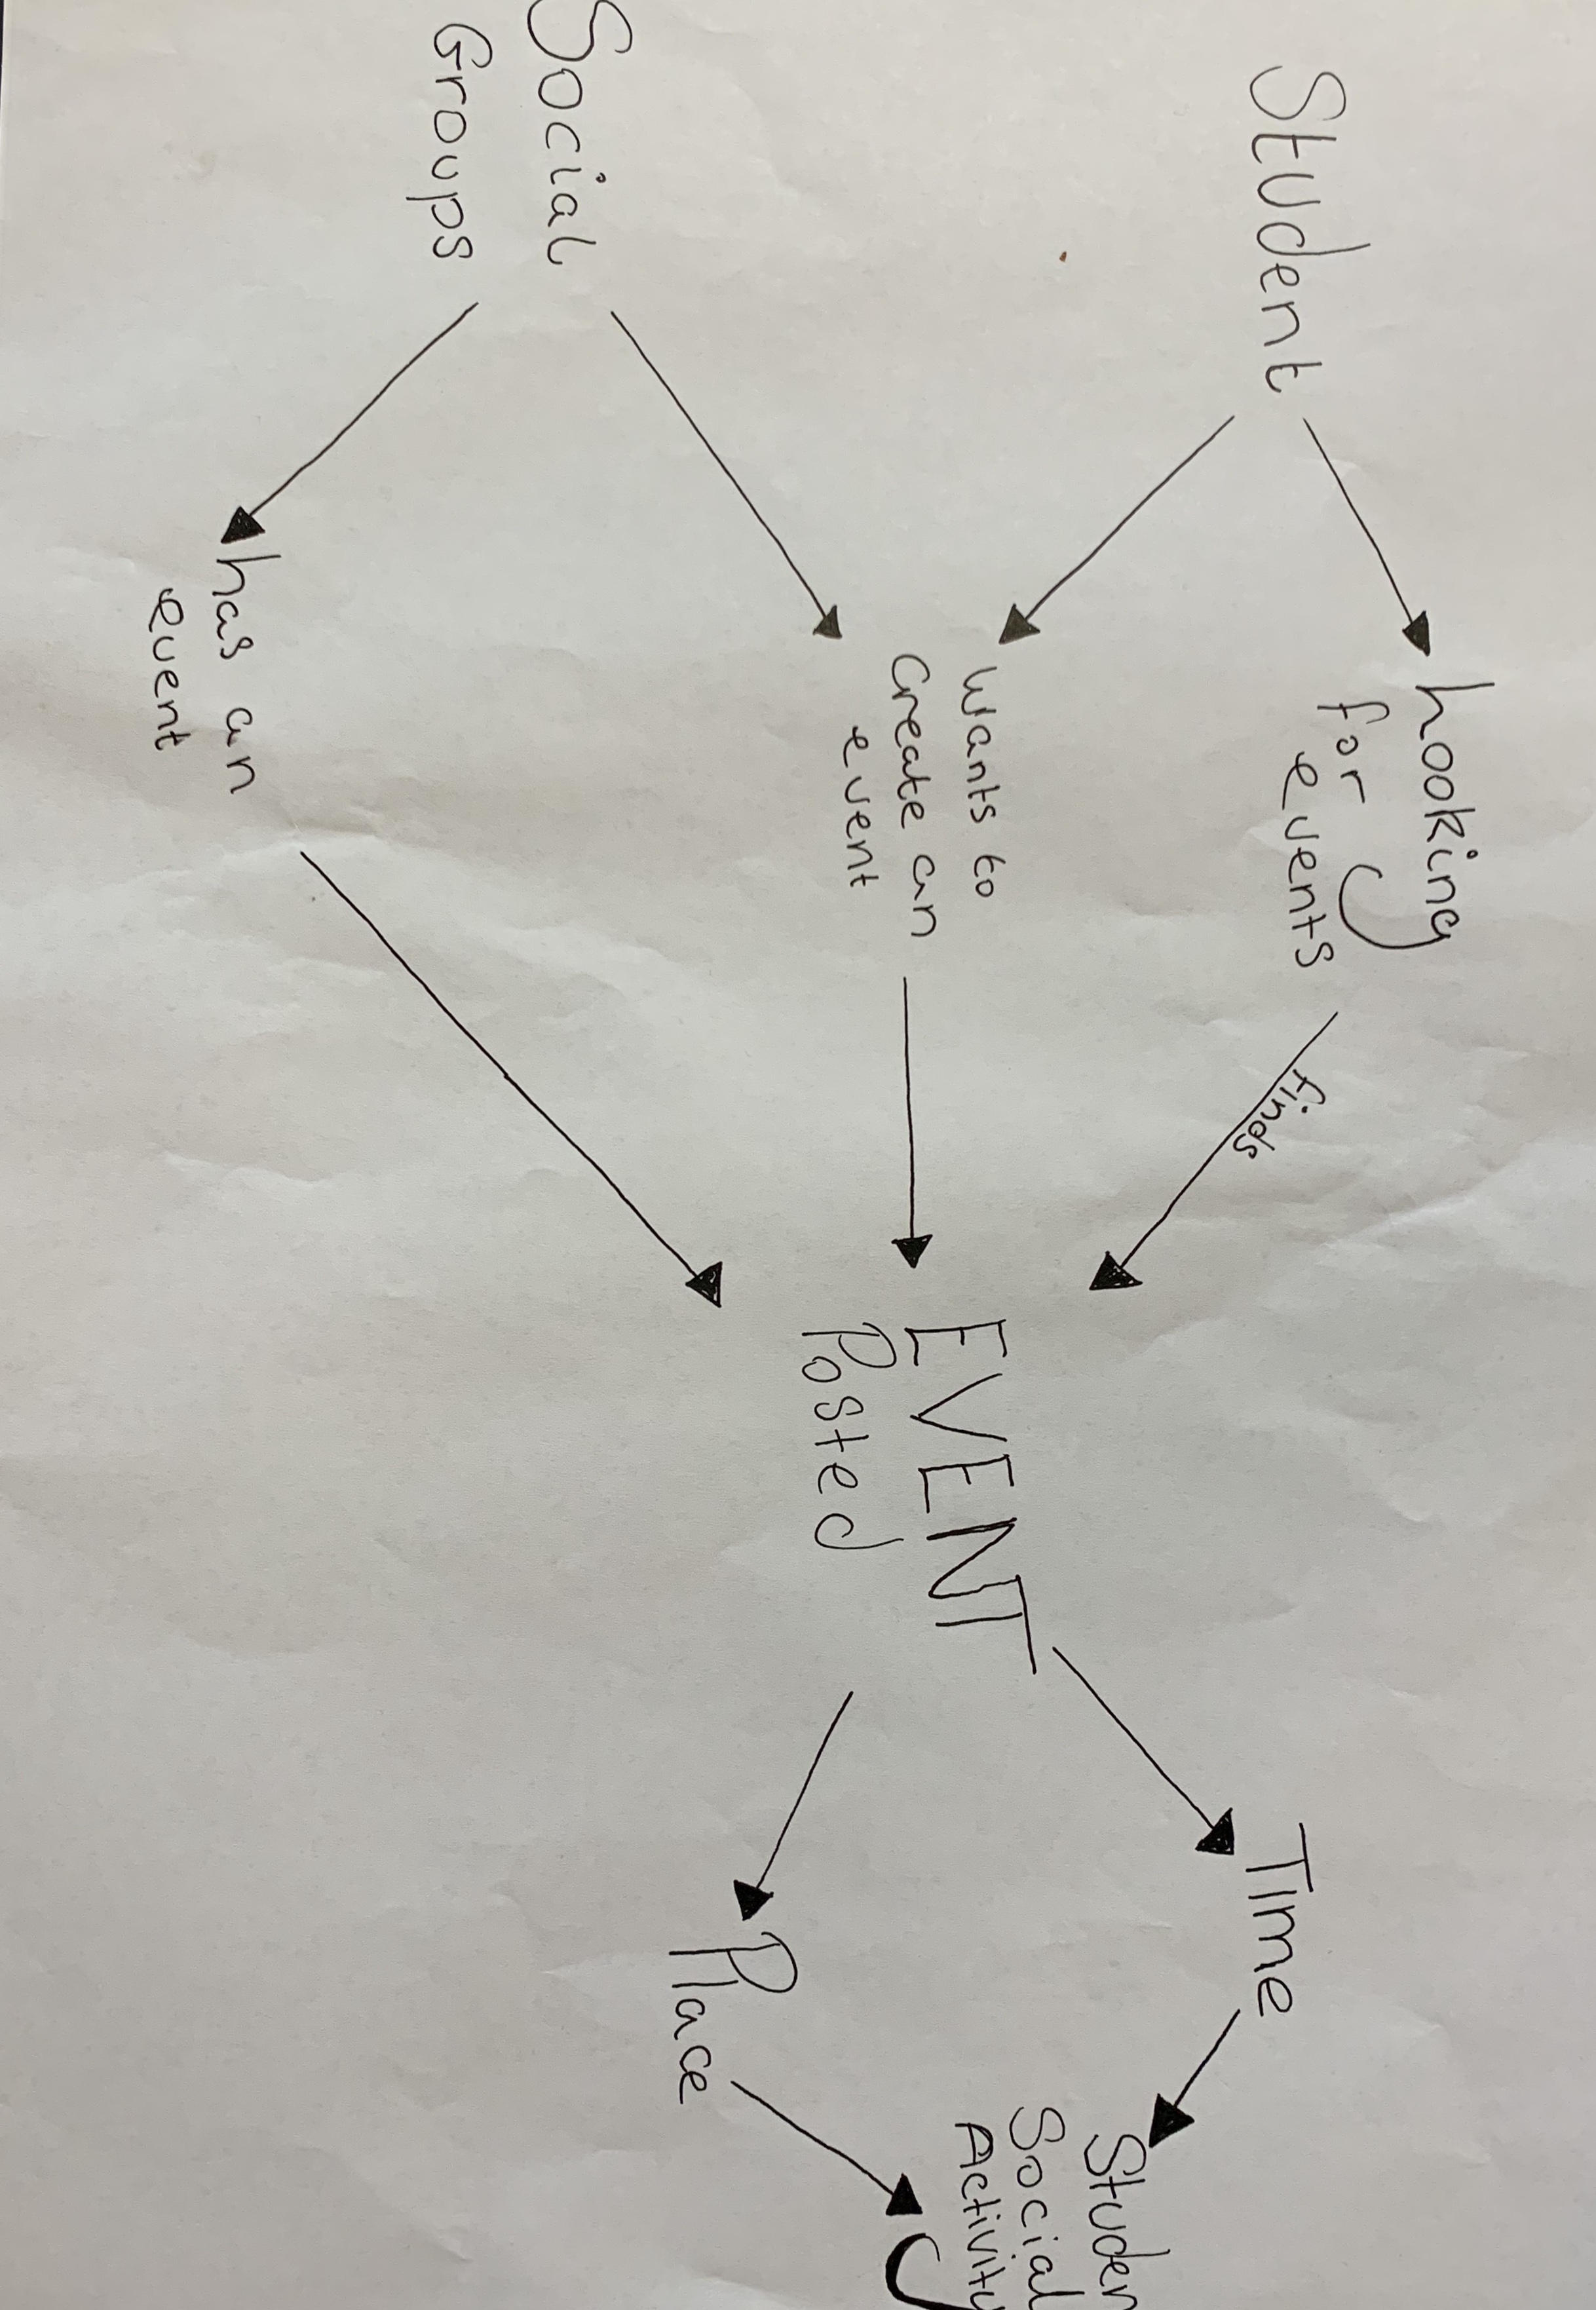 Student
Looking
for
events
finds
Wants to
Create an
event
Social
Groups
has an
event
EVENT
Posted
Time
Place
Studen
Social
Activity